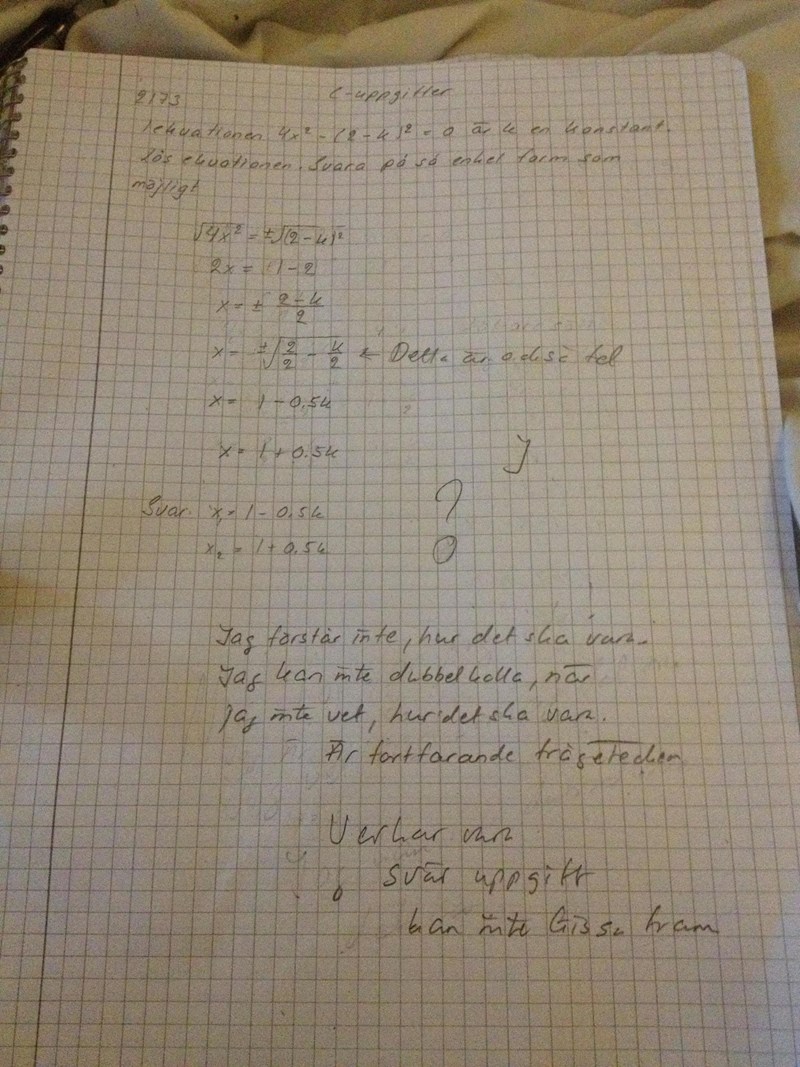 2173 C-uppgifter
I ekvationen 4x² - (2-k)² = 0 är k en konstant.
Lös ekvationen. Svara på så enkel form som
möjligt
√4x² = ±√(2-k)²
2x =
x = ± 2-k/2
x = ±√2/2 - k/2 ← Detta är
x = 1 - 0.5k
x = 1 + 0.5k
Svar. x₁ = 1 - 0.5k ?
x₂ = 1 + 0.5k
Jag förstår inte, hur det ska vara.
Jag kan inte dubbelkolla, när
jag inte vet, hur det ska vara.
Är fortfarande frågetecken
Verkar vara
svår uppgift
kan inte gissa fram